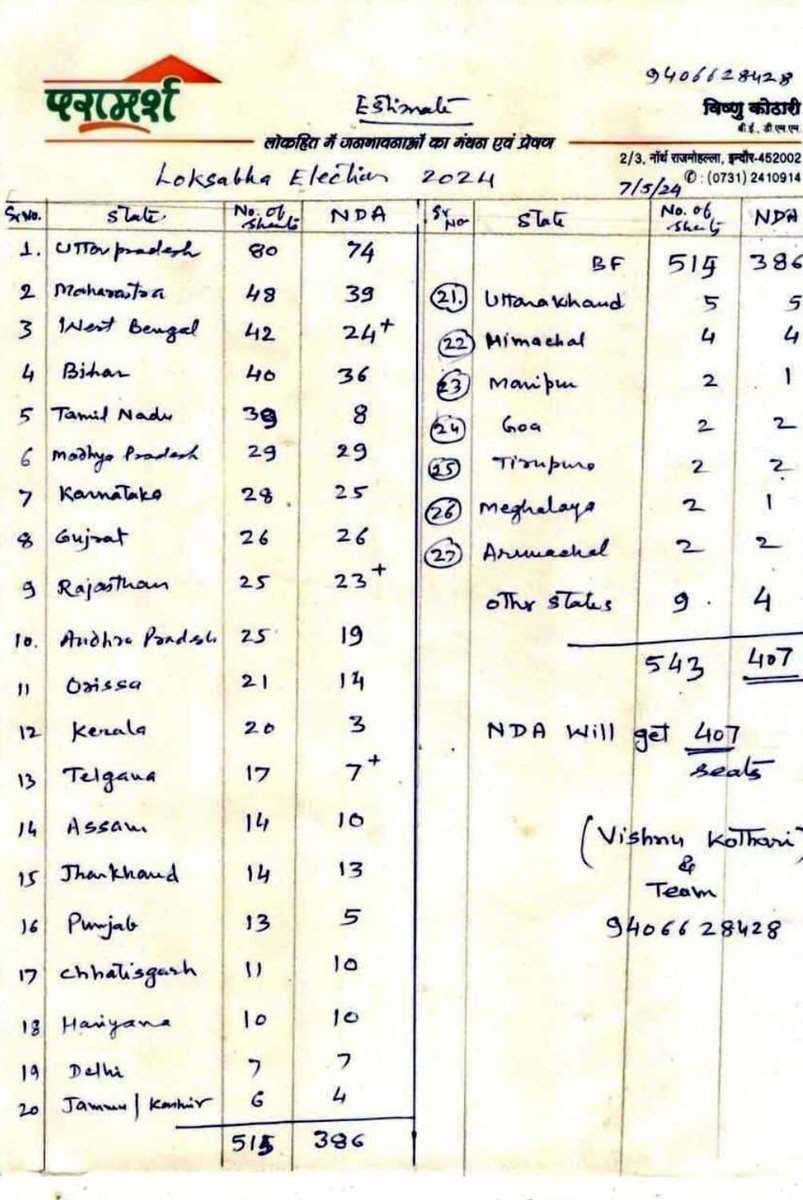 9406628428
परामर्श
Estimate
विष्णु कोठारी
बी.ई., डी.एम.एम.
लोकहित में जनभावनाओं का मंथन एवं प्रेषण
2/3, नॉर्थ राजमोहल्ला, इन्दौर-452002
✆ : (0731) 2410914
Loksabha Election 2024
7/5/24
Sr No. State No. of Sheats NDA
1. Uttar pradesh 80 74
2 Maharastra 48 39
3 West Bengal 42 24+
4 Bihar 40 36
5 Tamil Nadu 39 8
6 Madhya Pradesh 29 29
7 Karnataka 28 25
8 Gujrat 26 26
9 Rajasthan 25 23+
10. Andhra Pradesh 25 19
11 Orissa 21 14
12 Kerala 20 3
13 Telgana 17 7+
14 Assam 14 10
15 Jharkhand 14 13
16 Punjab 13 5
17 Chhatisgarh 11 10
18 Hariyana 10 10
19 Delhi 7 7
20 Jammu | Kashmir 6 4
515 386
Sr No State No. of Sheats NDA
BF 515 386
21. Uttarakhand 5 5
22 Himachal 4 4
23 Manipur 2 1
24 Goa 2 2
25 Tirupura 2 2
26 Meghalaya 2 1
27 Arunachal 2 2
othr states 9. 4
543 407
NDA Will get 407
seats
(Vishnu Kothari)
&
Team
9406628428